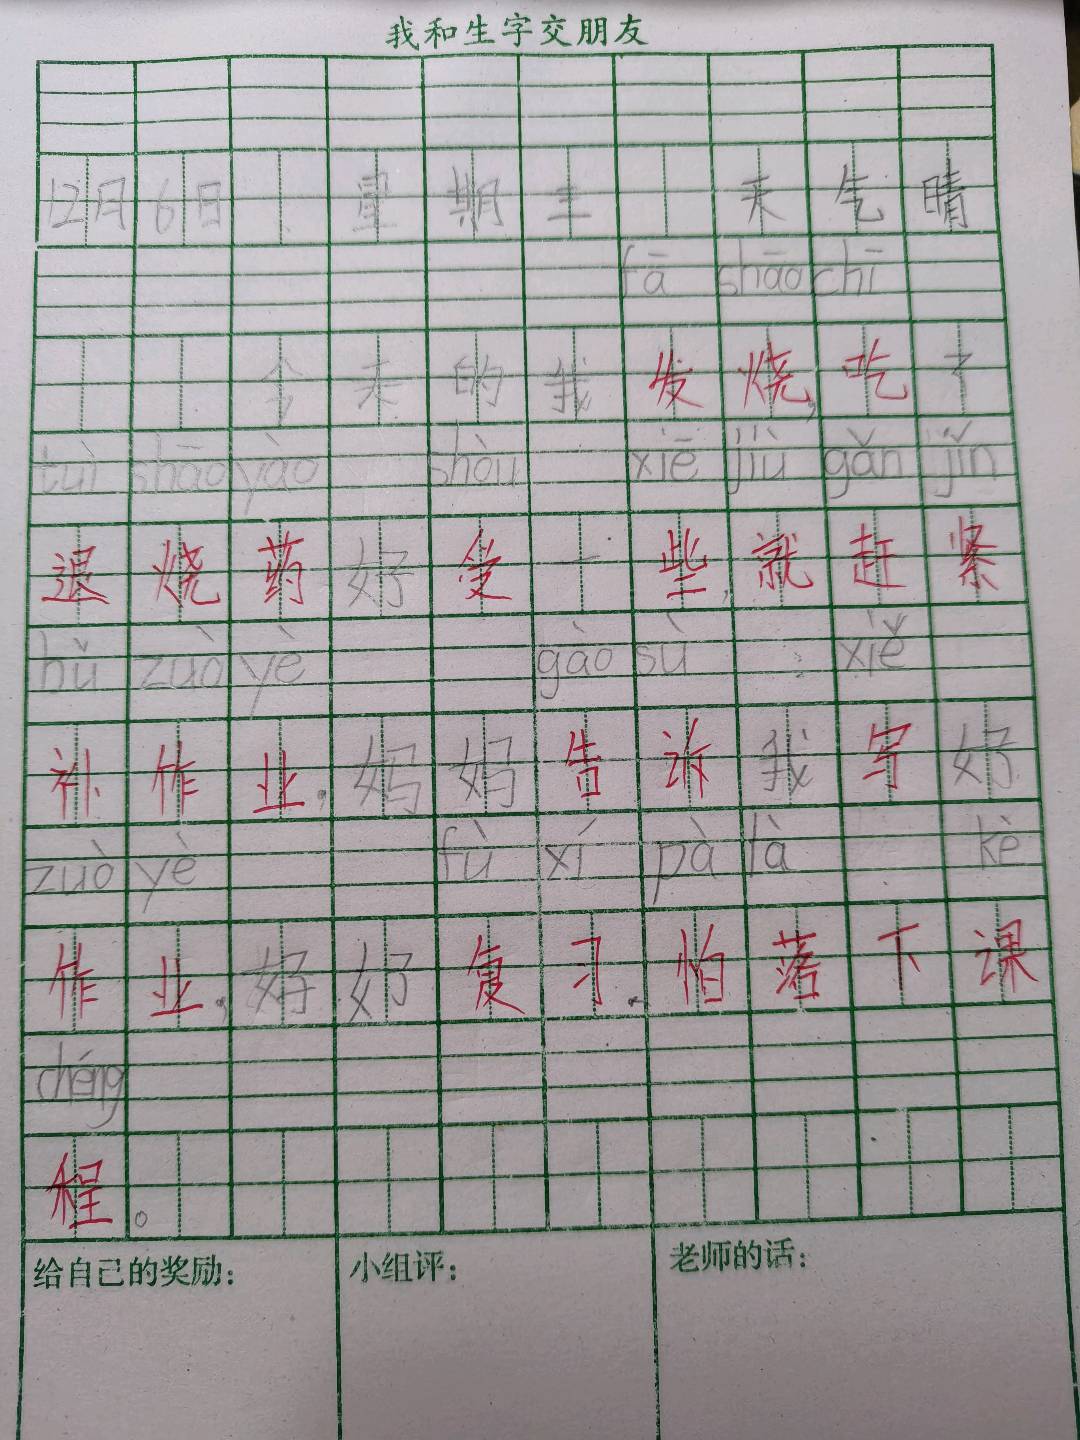 我和生字交朋友
12月6日 星期三 天气晴
fā shāo chī
今天的我发烧,吃了
tuì shāo yào shòu xiē jiù gǎn jǐn
退烧药好受一些,就赶紧
bǔ zuò yè gào sù xiě
补作业,妈妈告诉我写好
zuò yè fù xí pà là kè
作业,好好复习.怕落下课
chéng
程。
给自己的奖励: 小组评: 老师的话: